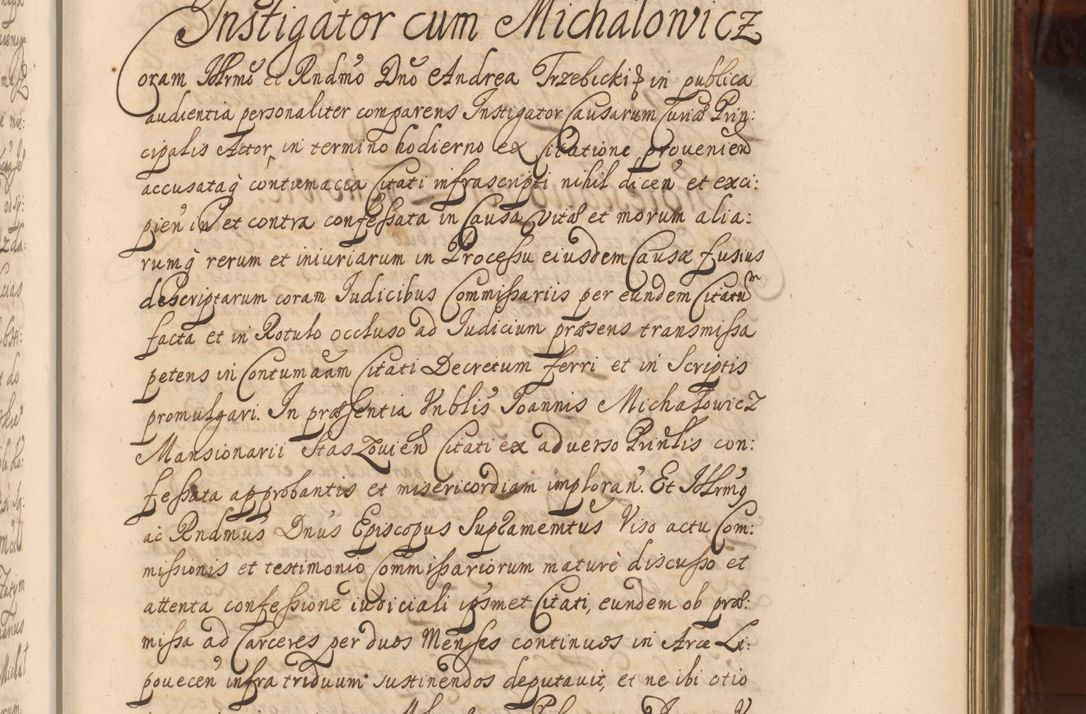 Instigator cum Michalowicz
Coram Illrmo et Rndmo Dno Andrea Trzebicki in publica
audientia personaliter comparens Instigator Causarum Curiæ Prin:
cipalis Actor, in termino hodierno ex Citatione provenien
accusata contumacia Citati infrascripti nihil dicen et exci:
pien et contra confessata in Causa vitæ et morum alia:
rumq rerum et iniuriarum in Processu eiusdem Causæ fusius
descriptarum coram Judicibus Commissariis per eundem Citatum
facta et in Rotulo occluso ad Judicium præsens transmissa
petens in Contumaam Citati Decretum ferri et in Scriptis
promulgari. In præsentia Vnblis Joannis Michałowicz
Mansionarii Staszovien Citati ex adverso Prinlis con:
fessata approbantis et misericordiam imploran. Et Illrmq
ac Rndmus Dnus Episcopus Supramemtus Viso actu Com:
missionis et testimonio Commissariorum mature discusso et
attenta confessione iudiciali ipsmet Citati, eundem ob præ:
missa ad Carceres per duos Menses continuos in Arce Li:
povecen infra triduum sustinendos deputavit, et ne ibi otio